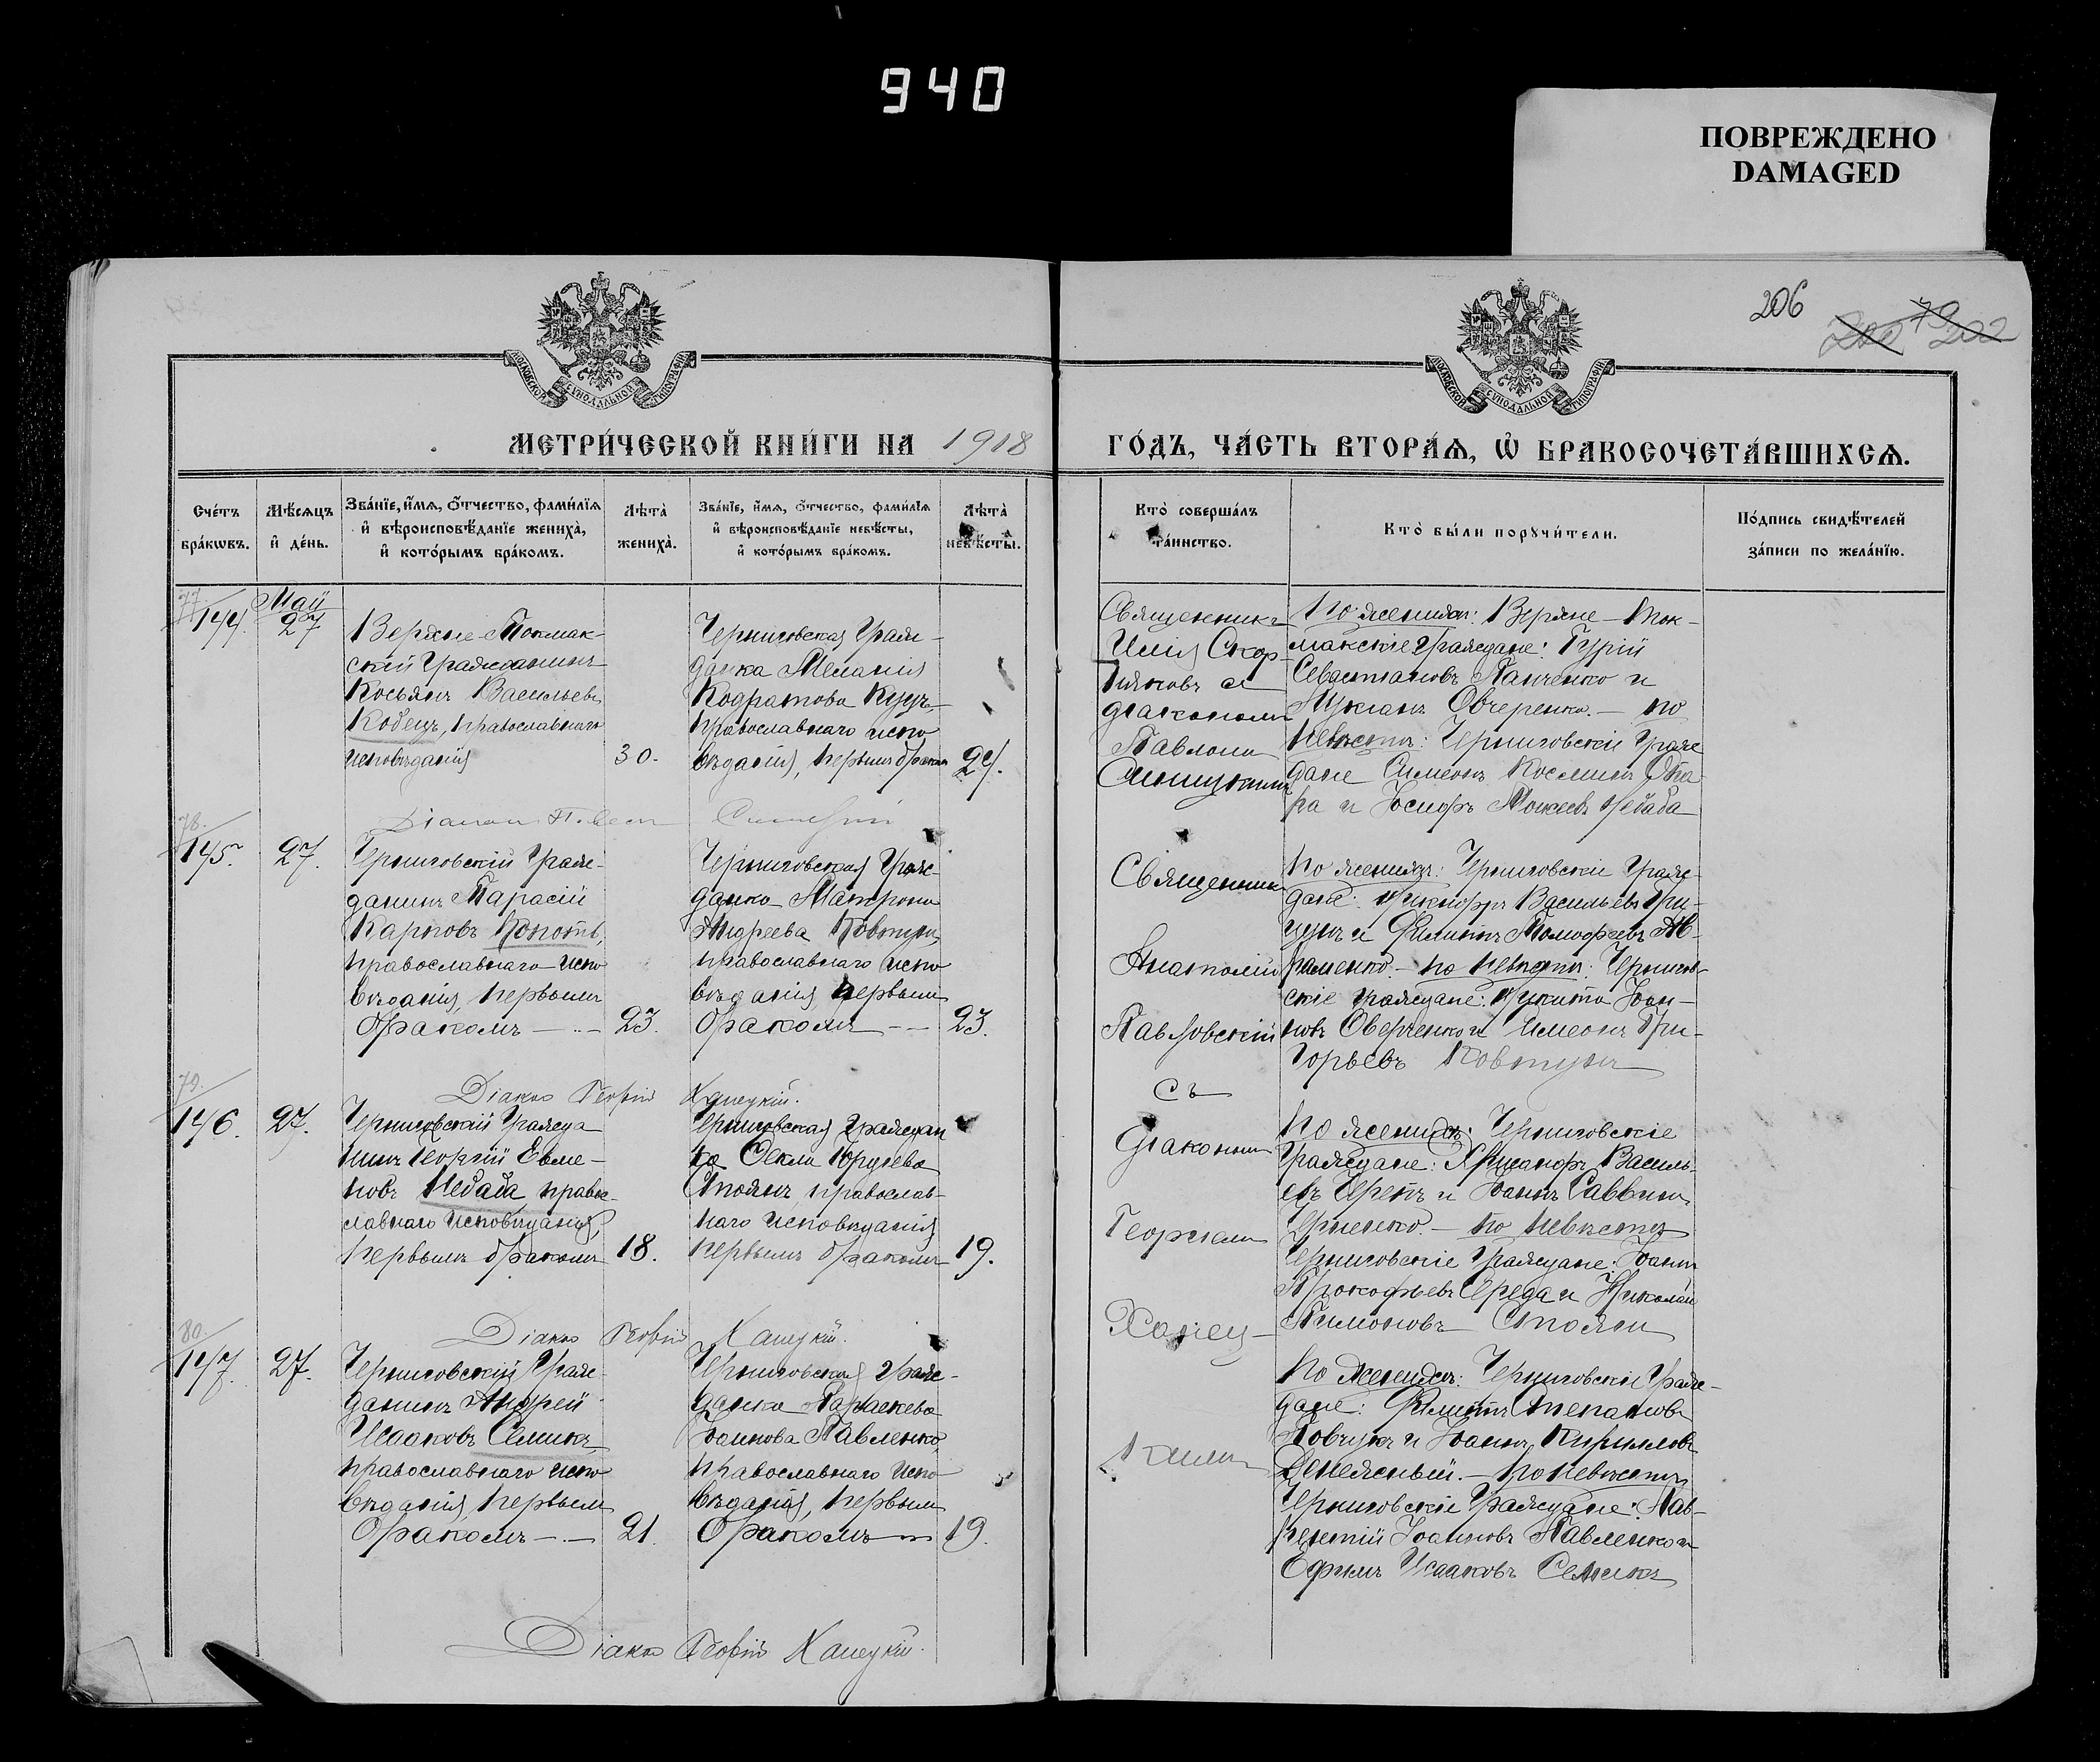 940
ПОВРЕЖДЕНО
DAMAGED
206
200 79 202
МОСКОВСКОЙ СУНОДАЛЬНОЙ ТИПОГРАФІИ
МОСКОВСКОЙ СУНОДАЛЬНОЙ ТИПОГРАФІИ
МЕТРИ́ЧЕСКОЙ КНИ́ГИ НА 1918
ГО́ДЪ, ЧА́СТЬ ВТОРА́Ѧ, Ѡ҆ БРАКОСОЧЕТА́ВШИХСѦ.
Сче́тъ бра́кѡвъ.
Мѣ́сяцъ и де́нь.
Зва́нїе, и҆́мѧ, о҆́тчество, фами́лїѧ
и҆ вѣроисповѣ́данїе жениха̀,
и҆ кото́рымъ бра́комъ.
Лѣта̀ жениха̀.
Зва́нїе, и҆́мѧ, о҆́тчество, фами́лїѧ
и҆ вѣроисповѣ́данїе невѣ́сты,
и҆ кото́рымъ бра́комъ.
Лѣта̀ невѣ́сты.
Кто̀ соверша́лъ та́инство.
Кто̀ бы́ли порꙋчи́тели.
По́дпись свидѣ́телей
за́писи по жела́нїю.
77.
144.
Май
27
Верхне-Токмак-
скій Гражданинъ
Косьянъ Васильевъ
Кобецъ, православнаго
исповѣданія
30.
Черниговская Граж-
данка Меланія
Кодратова Куцъ,
православнаго испо
вѣданія, первымъ бракомъ
24.
Священникъ
Илія Скор
няковъ съ
діакономъ
Павломъ
По женихѣ: Верхне-Ток-
макскіе Граждане: Гурій
Севастіановъ Панченко и
Лукіанъ Овчеренко. - по
невѣстѣ: Черниговскіе Граж
дане Симеонъ Косминъ
ра и Іосифъ Моисеевъ Небаба
Діаконъ Павелъ
78.
145.
27.
Черниговскій Граж-
данинъ Тарасій
Карповъ Копоть,
православнаго испо
вѣданія, первымъ
бракомъ - .. -
23.
Черниговская Граж-
данка Матрона
Андреева Ковтунъ,
православнаго испо
вѣданія первымъ
бракомъ - -
23.
Священникъ
Анатолій
Павловскій
съ
діакономъ
Георгіемъ
Ханец-
кимъ
По женихѣ: Черниговскіе Граж-
дане: Никифоръ Васильевъ Гри-
цунъ и Филиппъ Тимофеевъ Ав-
раменко. - по невѣстѣ: Чернигов-
скіе Граждане: Никита Іоан-
новъ Оверченко и Симеонъ Гри-
горьевъ Ковтунъ
Діаконъ Георгій Ханецкій.
79.
146.
27.
Черниговскій Гражда
нинъ Георгій Евме-
новъ Небаба правос-
лавнаго исповѣданія,
первымъ бракомъ
18.
Черниговская Граждан
ка Ѳекла
Стоянъ православ-
наго исповѣданія
первымъ бракомъ
19.
По женихѣ: Черниговскіе
Граждане: Василь-
евъ Черепъ и Іоаннъ Саввинъ
- по невѣстѣ
Черниговскіе Граждане: Іоаннъ
Прокофьевъ Середа и Николай
Тимоновъ Стоянъ
Діаконъ Георгій Ханецкій.
80.
147.
27.
Черниговскій Граж-
данинъ Андрей
Исааковъ Семикъ,
православнаго испо
вѣданія, первымъ
бракомъ - . -
21.
Черниговская Граж-
данка Параскева
Іоаннова Павленко,
православнаго испо-
вѣданія, первымъ
бракомъ -
19.
По женихѣ: Черниговскіе Граж-
дане: Филиппъ Степановъ
Ковтунъ и Іоаннъ Кирилловъ
Денежный. - по невѣстѣ
Черниговскіе Граждане: Лав-
рентій Іоанновъ Павленко и
Ефимъ Исааковъ Семикъ
Діаконъ Георгій Ханецкій.